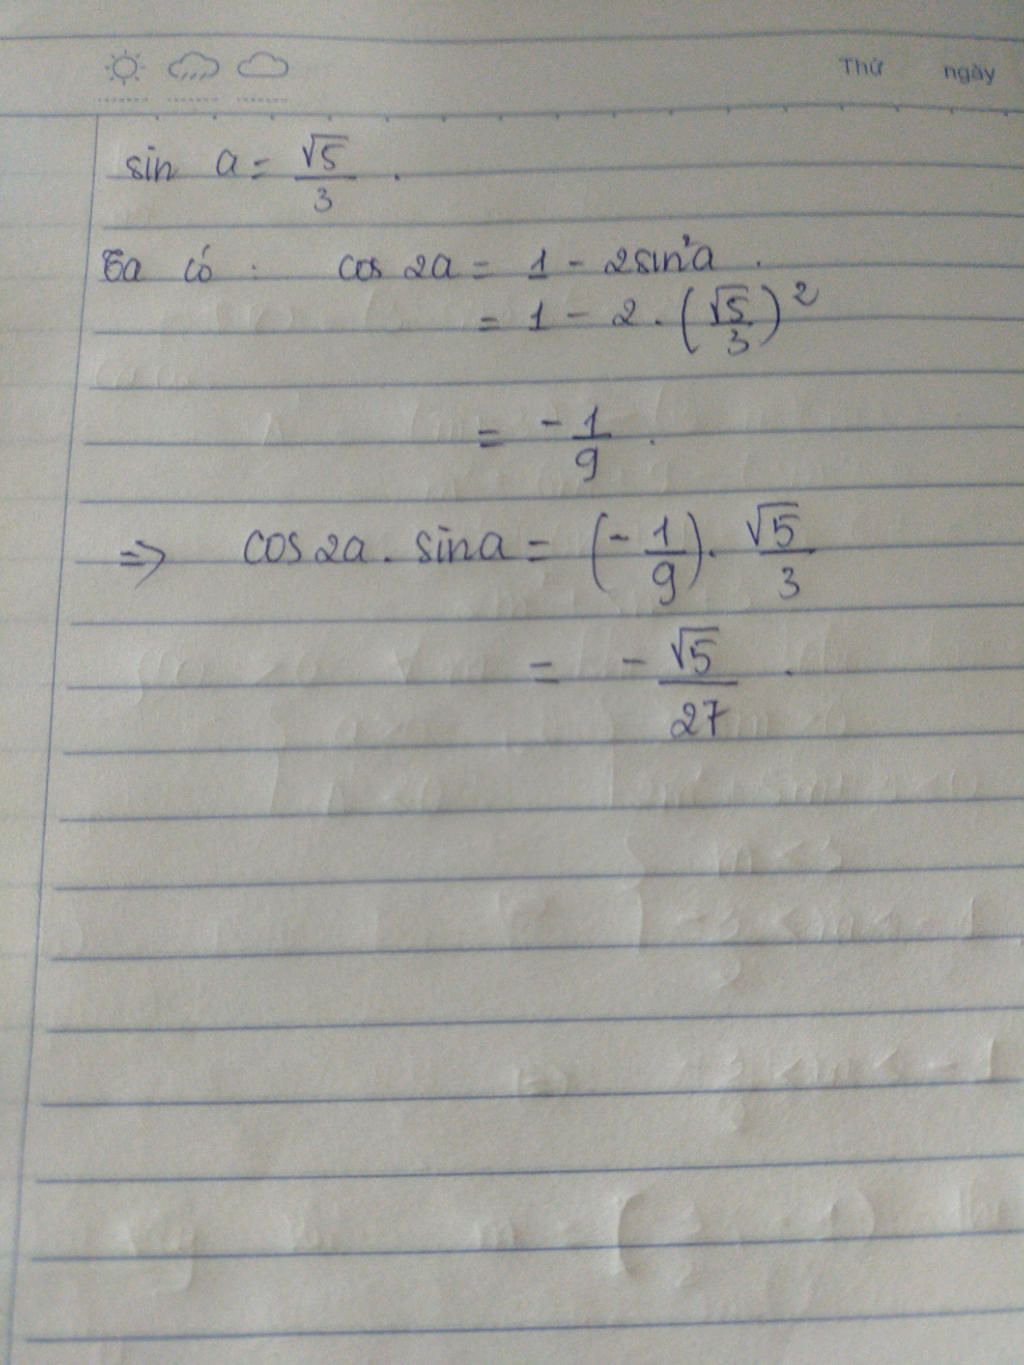 Thứ ngày
sin a = √5/3 .
Ta có : cos 2a = 1 - 2sin²a .
= 1 - 2 . (√5/3)²
= -1/9 .
=> cos 2a . sin a = (-1/9) . √5/3
= - √5/27 .